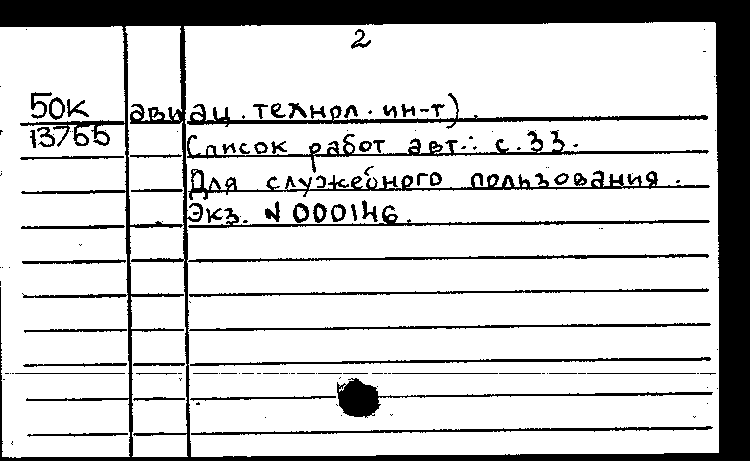 2
50К авиац. технол. ин-т).
13755 Список работ авт.: с. 33.
Для служебного пользования.
Экз. N 000146.